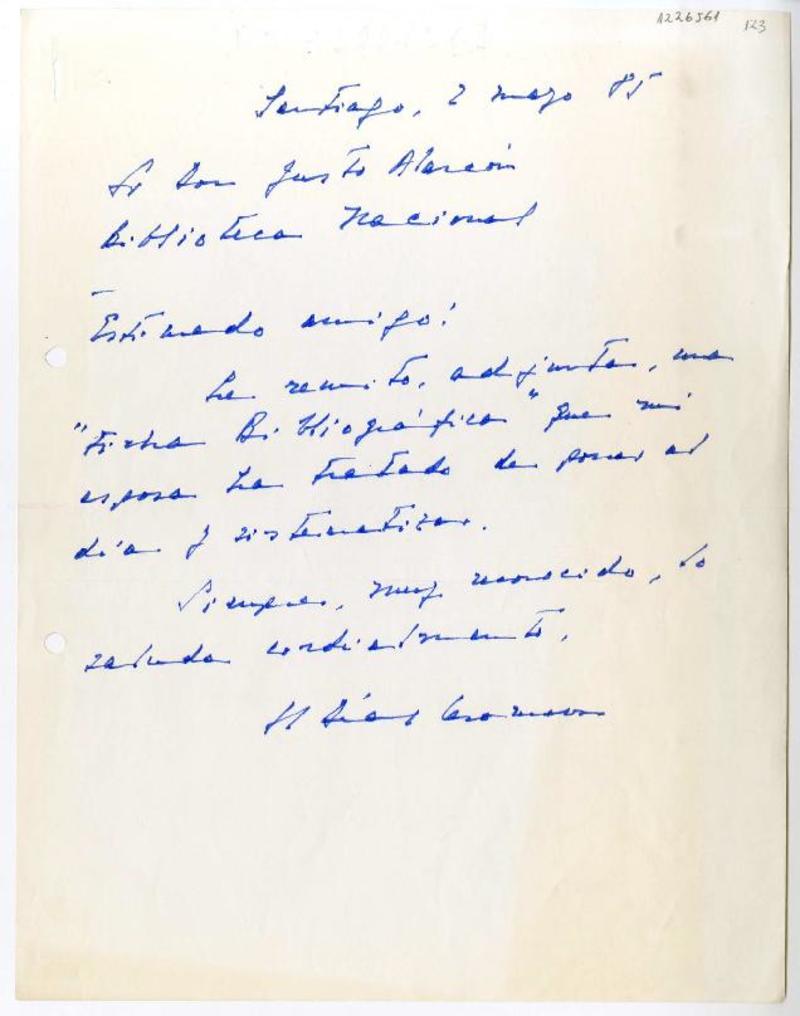 1226561 123
Santiago, 2 mayo 85
Sr Don Justo Alarcón
Biblioteca Nacional
Estimado amigo:
Le remito, adjunta, una
"Ficha Bibliográfica" que mi
esposa ha tratado de poner al
día y sistematizar.
Siempre, muy reconocido, lo
saluda cordialmente,
H Díaz Casanueva